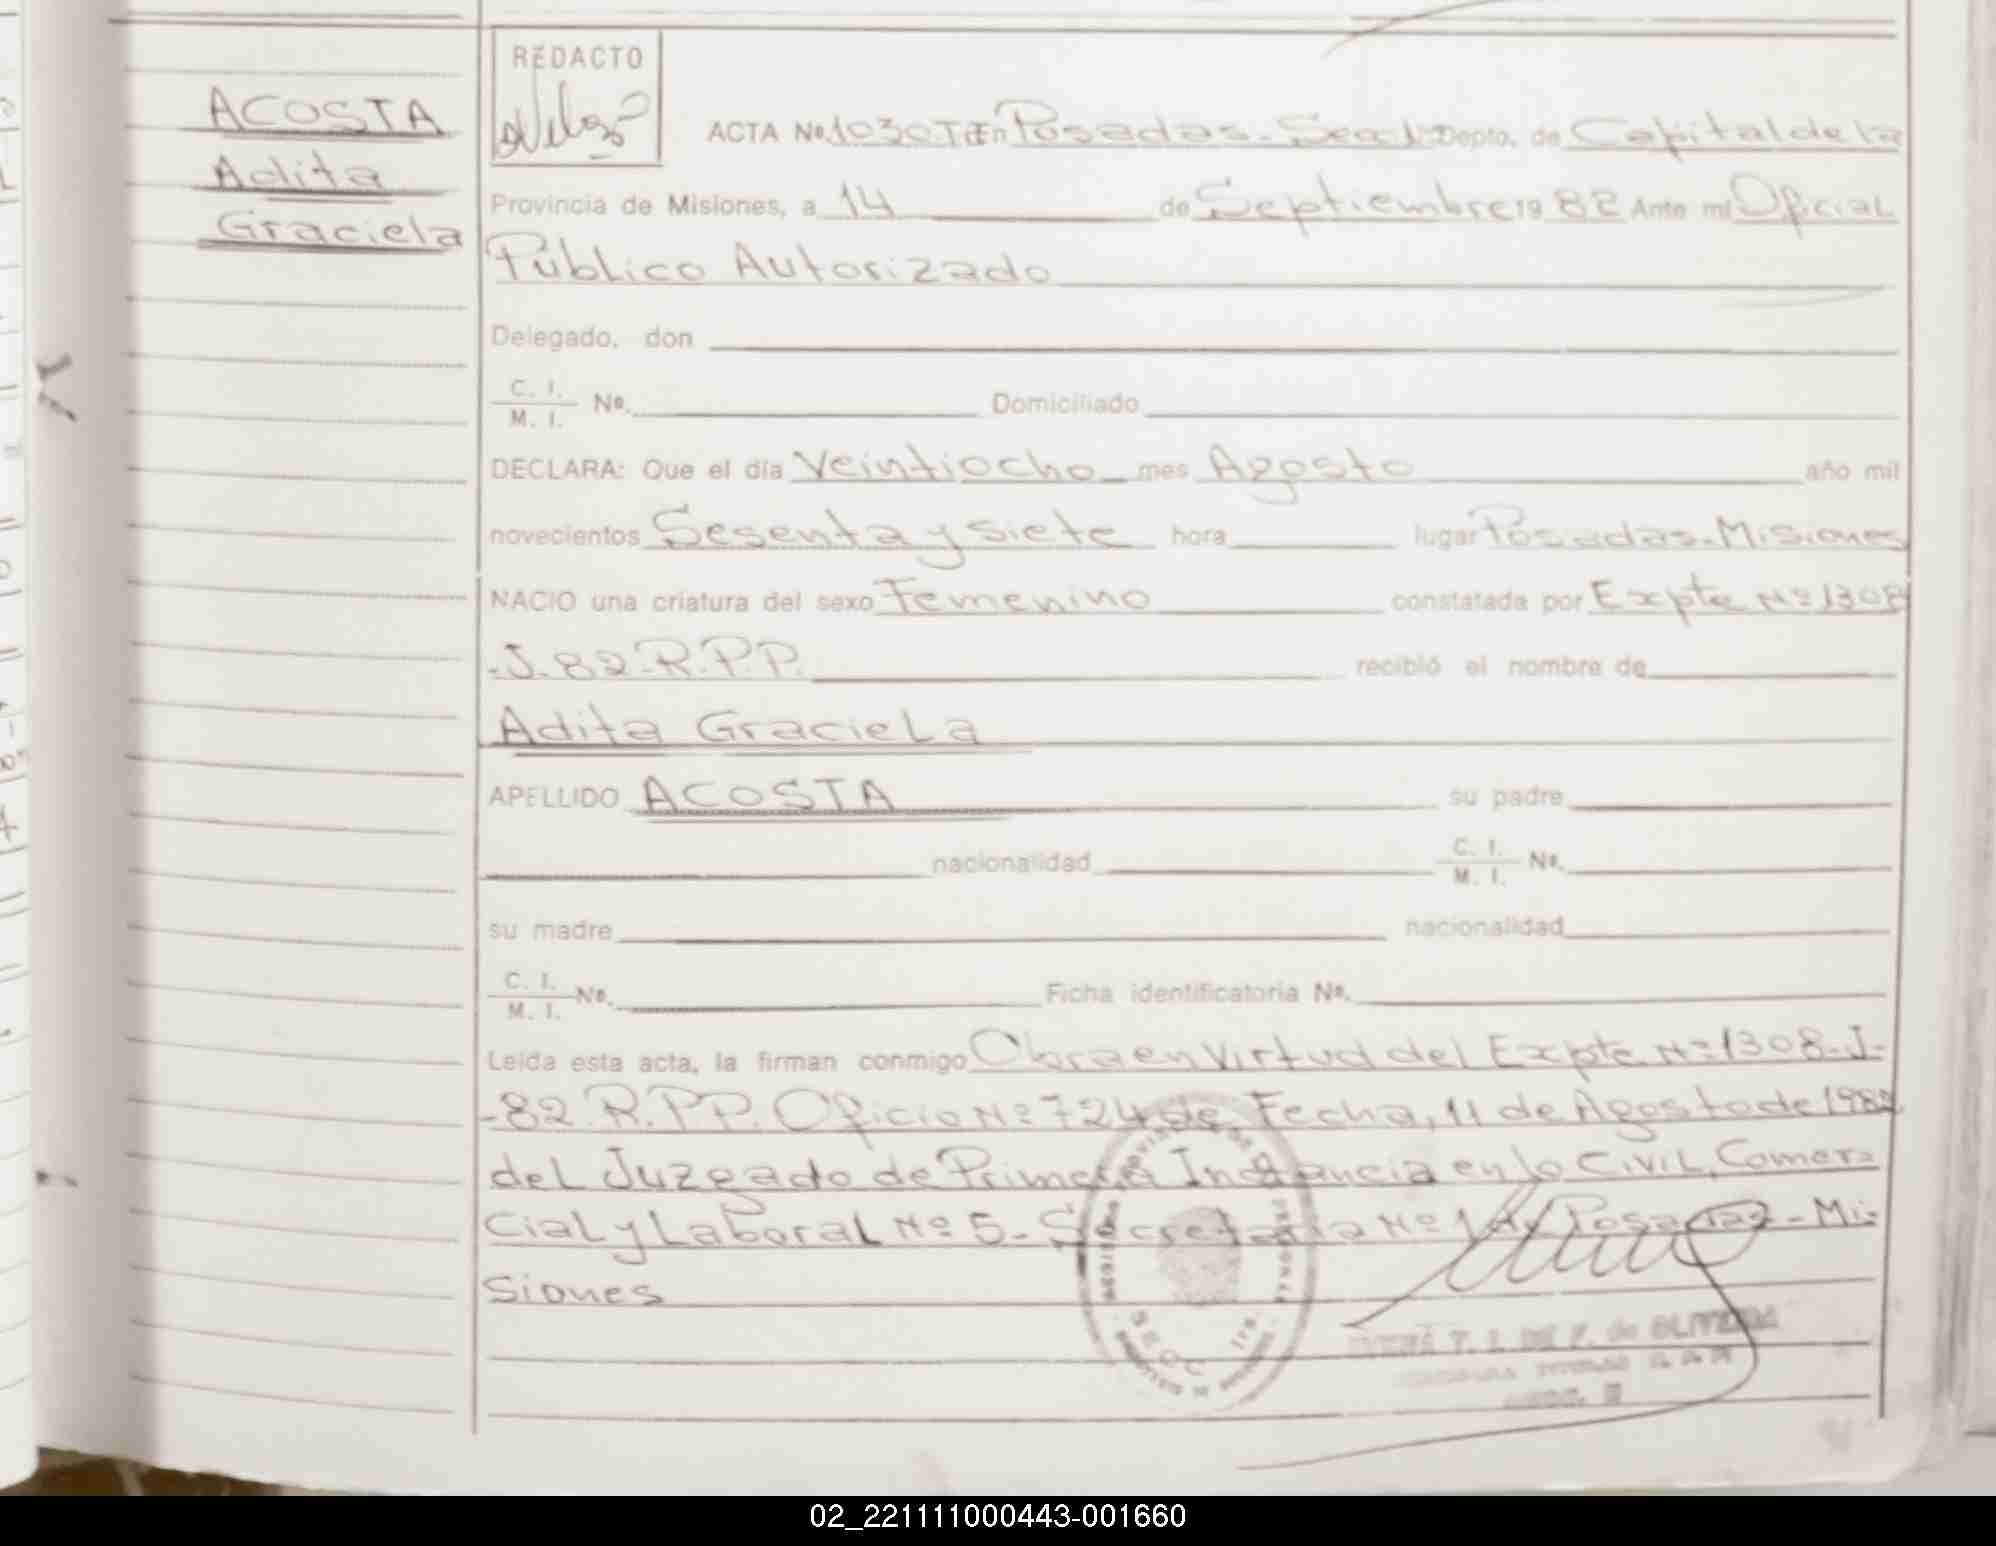 REDACTO
ACOSTA
Adita
Graciela
ACTA Nº 1030 En Posadas - Depto. de Capital de la
Provincia de Misiones, a 14 de Septiembre 19 82 Ante mi Oficial
Público Autorizado
Delegado, don
C. I. / M. I. Nº. Domiciliado
DECLARA: Que el día Veintiocho mes Agosto año mil
novecientos Sesenta y siete hora lugar Posadas-Misiones
NACIO una criatura del sexo Femenino constatada por Expte Nº 1308
-J-82.R.P.P. recibió el nombre de
Adita Graciela
APELLIDO ACOSTA su padre
nacionalidad C. I. / M. I. Nº.
su madre nacionalidad
C. I. / M. I. Nº. Ficha identificatoria Nº.
Leída esta acta, la firman conmigo Obra en Virtud del Expte Nº 1308-J-
-82.R.P.P. Oficio Nº 724 de Fecha, 11 de Agosto de 1982
del Juzgado de Primera Instancia en lo Civil, Comer=
cial y Laboral Nº 5- Secretaria Nº 1 de Posadas-Mi-
siones
de OLIVEIRA
02_221111000443-001660